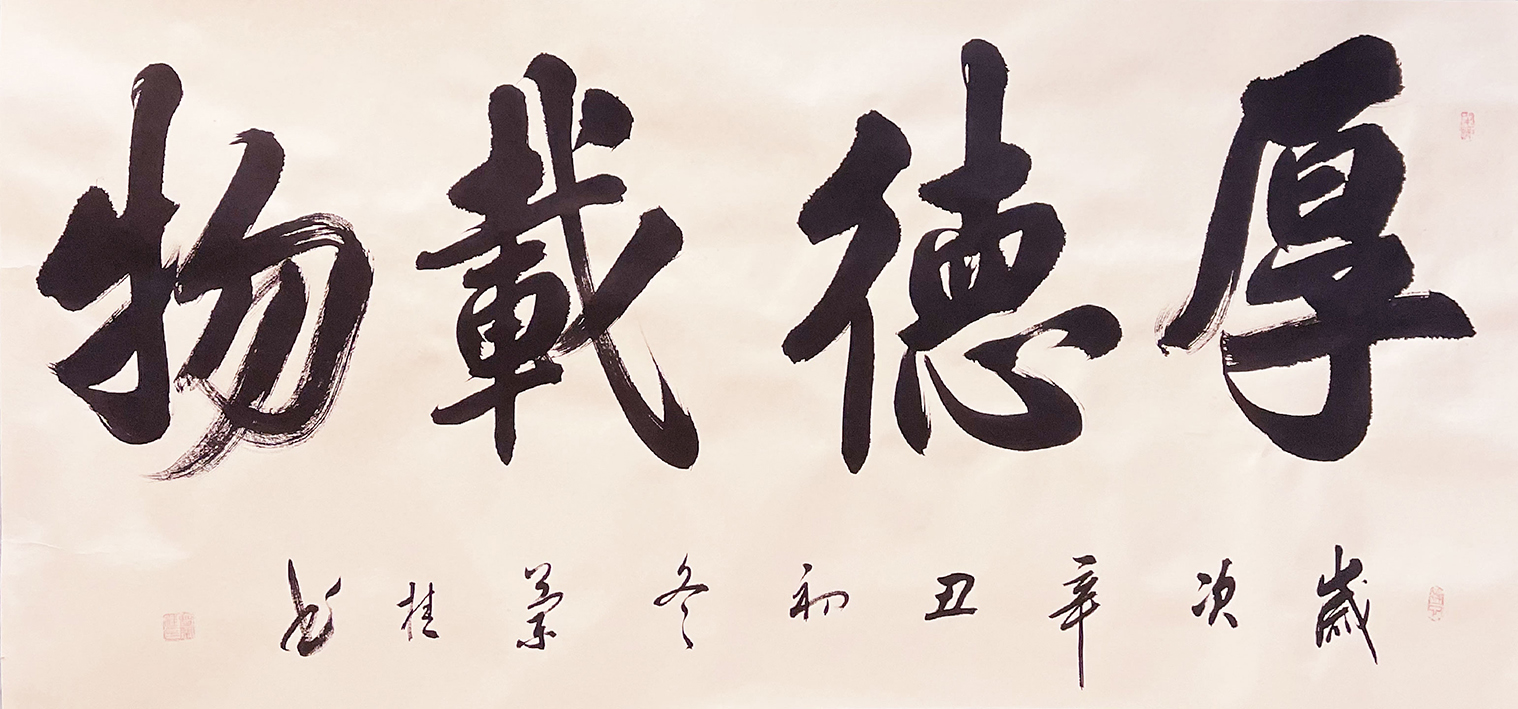 厚德載物
歲次辛丑初冬桂書